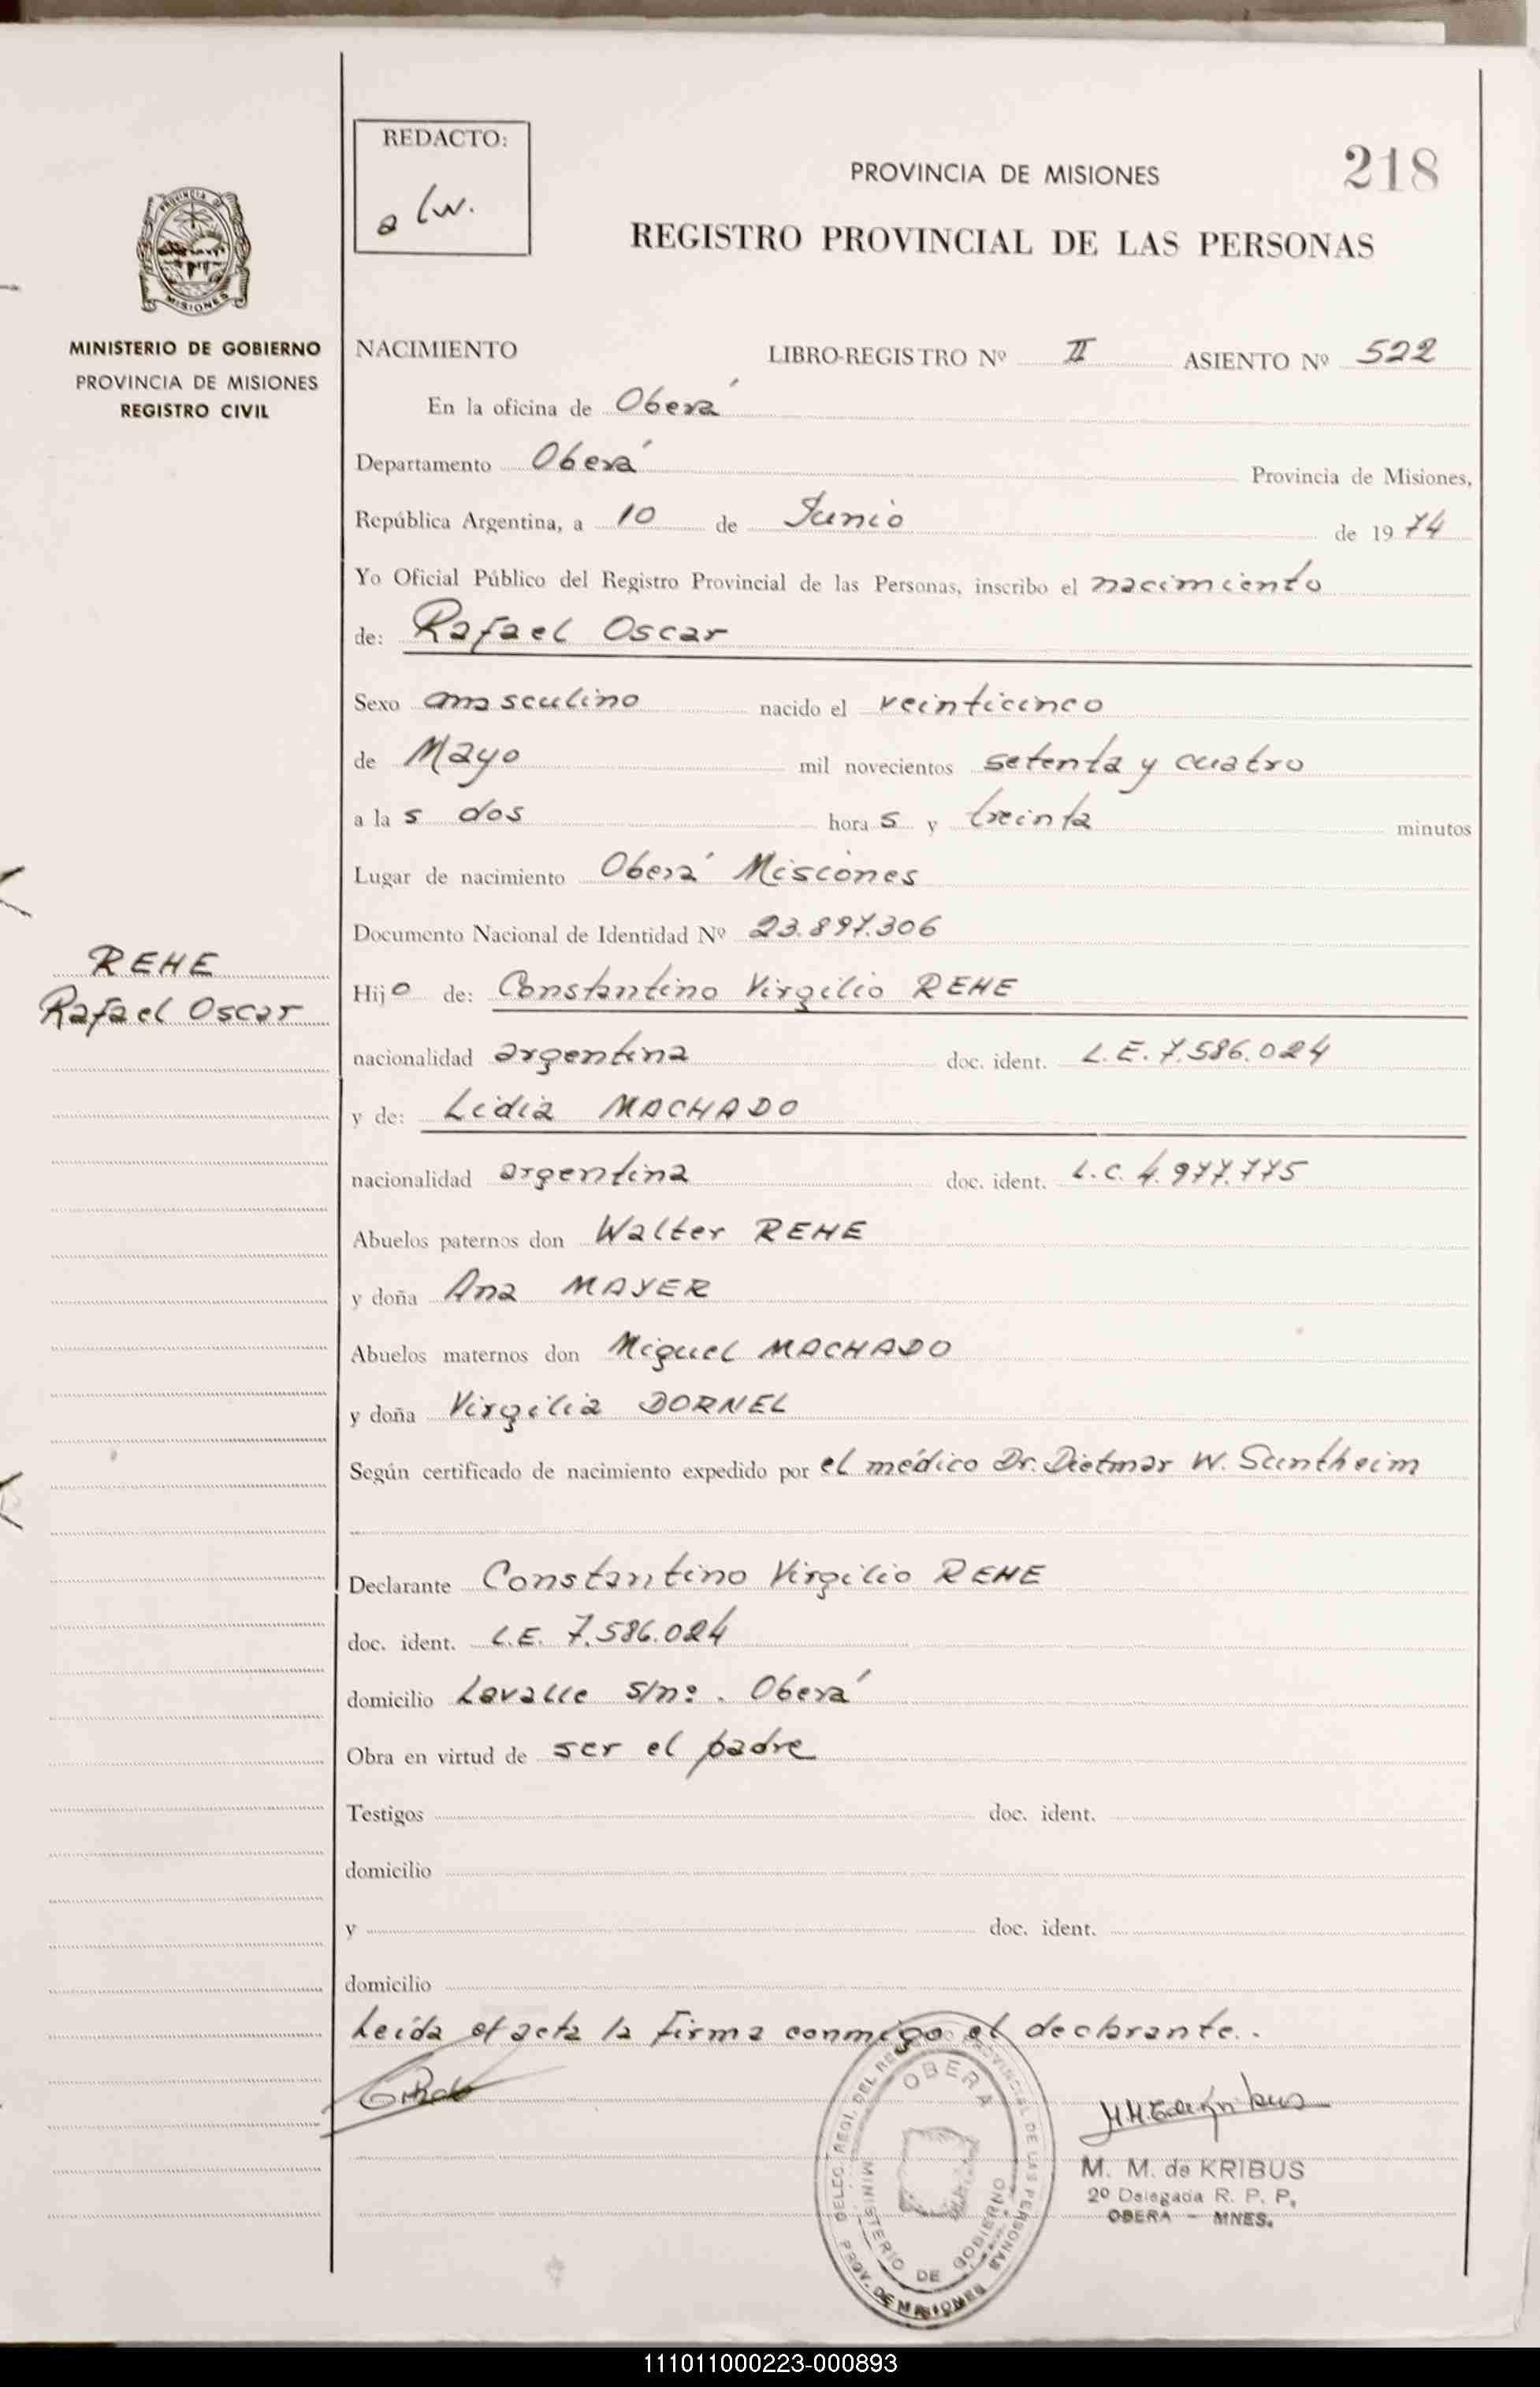 REDACTO:
a lw.
PROVINCIA DE MISIONES
218
REGISTRO PROVINCIAL DE LAS PERSONAS
PROVINCIA DE
MISIONES
MINISTERIO DE GOBIERNO
PROVINCIA DE MISIONES
REGISTRO CIVIL
NACIMIENTO LIBRO-REGISTRO Nº II ASIENTO Nº 522
En la oficina de Oberá
Departamento Oberá Provincia de Misiones,
República Argentina, a 10 de Junio de 1974
Yo Oficial Público del Registro Provincial de las Personas, inscribo el nacimiento
de: Rafael Oscar
Sexo masculino nacido el veinticinco
de Mayo mil novecientos setenta y cuatro
a la s dos hora s y treinta minutos
Lugar de nacimiento Oberá Misiones
Documento Nacional de Identidad Nº 23.897.306
REHE
Rafael Oscar
Hijo de: Constantino Virgilio REHE
nacionalidad argentina doc. ident. L.E. 7.586.024
y de: Lidia MACHADO
nacionalidad argentina doc. ident. L.C. 4.977.775
Abuelos paternos don Walter REHE
y doña Ana MAYER
Abuelos maternos don Miguel MACHADO
y doña Virgilia DORNEL
Según certificado de nacimiento expedido por el médico Dr. Dietmar W. Suntheim
Declarante Constantino Virgilio REHE
doc. ident. L.E. 7.586.024
domicilio Lavalle s/nº. Oberá
Obra en virtud de ser el padre
Testigos doc. ident.
domicilio
y doc. ident.
domicilio
Leída el acta la firma conmigo el declarante.
DELEG. REGI. DEL REG. PROVINCIAL DE LAS PERSONAS
OBERA
MINISTERIO DE GOBIERNO
PROV. DE MISIONES
M. M. de KRIBUS
2º Delegada R. P. P.
OBERA - MNES.
111011000223-000893